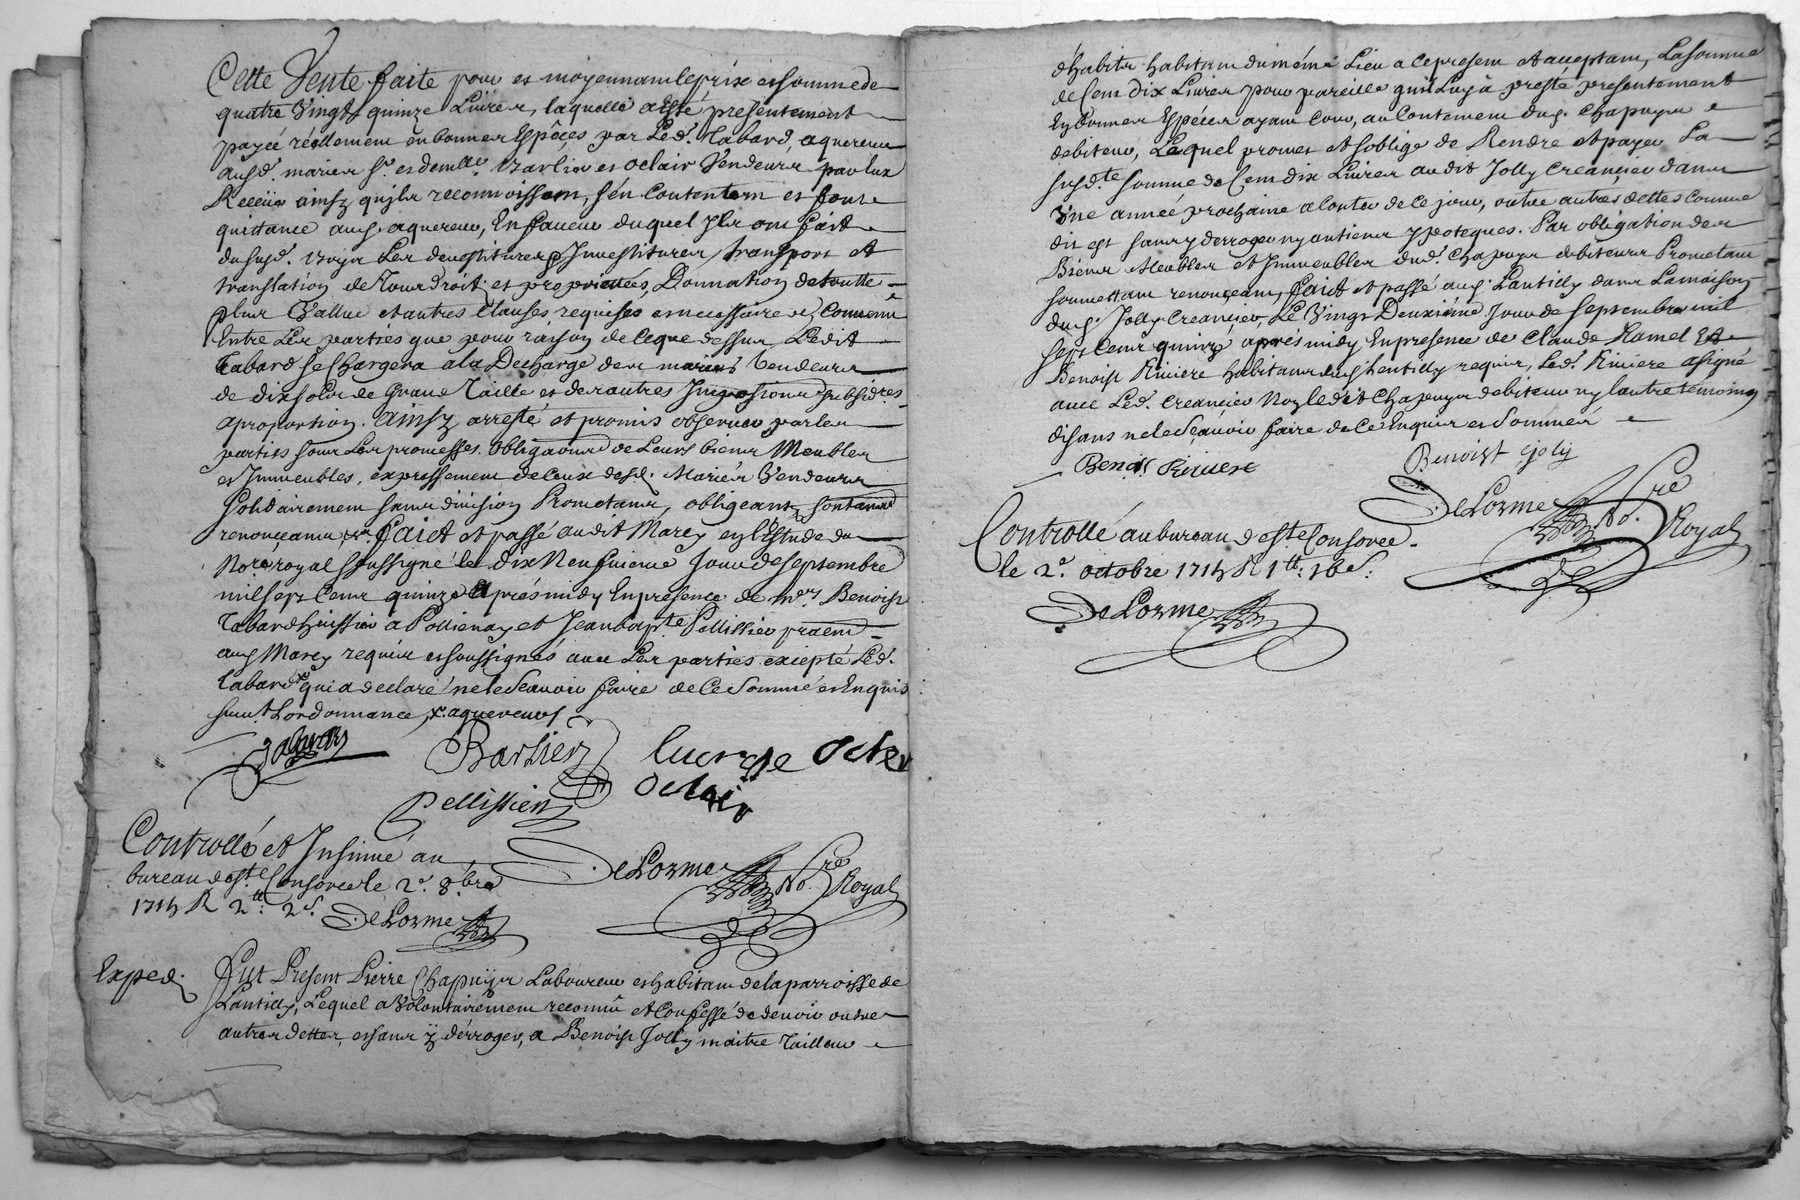 Cette Vente faite pour et moyennant le prix et somme de
quatre Vingt quinze Livres, laquelle a esté présentement
payée réellement en bonnes Espèces par Led. Tabard, aquereur
ausd. mariés Sr. et demlle. Barlier et Oclair Vendeurs par Eux
Receüe ainsy qu'ils reconnoissent, s'en Contentent et font
quittance aud. aquereur, En faveur duquel Ils ont fait
du susd. Les devestitures Investitures, transport et
translation de Tous droits et proprietées, Donnation de toutte
plus Vallue et autres Clauses requises et necessaires, Convenu
Entre Les parties que pour raison de Ce que dessus, Ledit
Tabard se Chargera a la Decharge des mariés Vendeurs
de dix sols de Grand Taille et des autres Impositions subsides
aproportion. Ainsy arresté et promis observer par les
parties sous Les promesses obligaons de Leurs biens Meubles
et Immeubles, expressement de Ceux desd. Mariés Vendeurs
Solidairement sans division Prometans, obligeants,
renonceants, &a. faict et passé audit Marcy en l'Estude du
Nore. royal soussigné le dix Neufuieme Jour de septembre
mil sept Cent quinze Aprés midy En presence de mrs. Benoist
Tabard huissier a Pollienay et Jean bapte. Pellissier praticien
aud Marcy requis et soussignés avec Les parties excepté Led.
Tabard x qui a declaré ne le Scavoir faire de Ce Sommé et Enquis
suivt. Lordonnance, x. aquereur
Barlier Lucresse Ocler
Oclair
Pellissier
Controllé et Insinué au
bureau de St. Consorce le 2e. 8bre
1715 R 2tt: 2s. DeLorme
DeLorme No.re Royal
Exped.
Fut Présent Pierre Chapuys Laboureur et habitant de la parroisse de
Lantilly, Lequel a Volontairement reconnû et Confessé de devoir outre
autres dettes, et sans y dérroger, a Benoist Jolly maitre Tailleur
d'habits habitant du même Lieu a Ce present et acceptant, La somme
de Cent dix Livres pour pareille qu'il Luy à presté presentement
En bonnes Espéces ayant Cour, au Contentement dud. Chapuys
debiteur, Lequel promet et s'oblige de Rendre et payer La
susd.te somme de Cent dix Livres audit Jolly Creancier dans
Une année prochaine a Conter de Ce jour, outre autres dettes comme
dit est sans y derroger ny antiens ypoteques. Par obligation des
Biens Meubles et Immeubles dud. Chapuys debiteur Prometant
soumettant renonceant, faict et passé aud. Lantilly dans La maison
dud. Jolly Creancier, Le Vingt Deuxiéme Jour de septembre mil
sept Cent quinze aprés midy En presence de Claude Ramel Et
Benoist Riviere habitans dud. Lentilly requis, Led. Riviere a signé
avec Led. Creancier Non ledit Chapuys debiteur ny lautre témoing
disans ne le Sçavoir faire de Ce Enquis et Sommés
Benoist Riviere Benoist Joly
DeLorme No.re Royal
Controllé au bureau de St. Consorce
le 2e. octobre 1715 R 1tt: 16s.
DeLorme